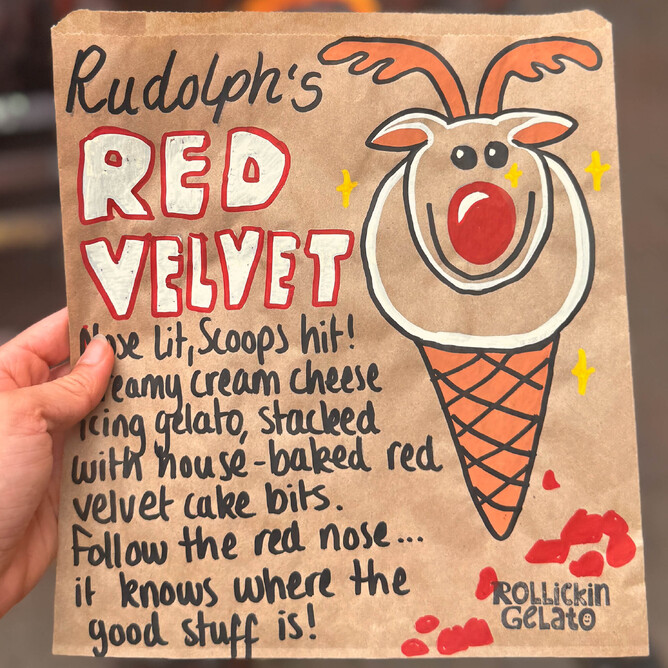 Rudolph's
RED
VELVET
Nose Lit, Scoops hit!
creamy cream cheese
icing gelato, stacked
with house-baked red
velvet cake bits.
Follow the red nose...
it knows where the
good stuff is!
ROLLiCKiN
GeLATO